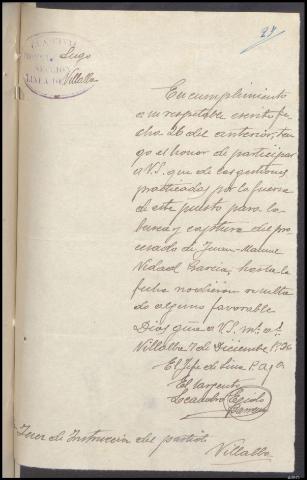 27
GUARDIA CIVIL
Lugo
SECCION
LINEA DE
Villalba
En cumplimiento
a su respetable escrito fe-
cha 26 del anterior, ten-
go el honor de participar
a V.S. que de las gestiones
practicadas por la fuerza
de este puesto para la
busca y captura del pro-
cesado de Juan-Manuel
Vidad Garcia, hasta la
fecha no dieron resulta
do alguno favorable
Dios gue a V.S. ms. as.
Villalba 7 de Diciembre
El Jefe de Linea
El Sargento
Leandro
Juez de Instruccion del partido
Villalba